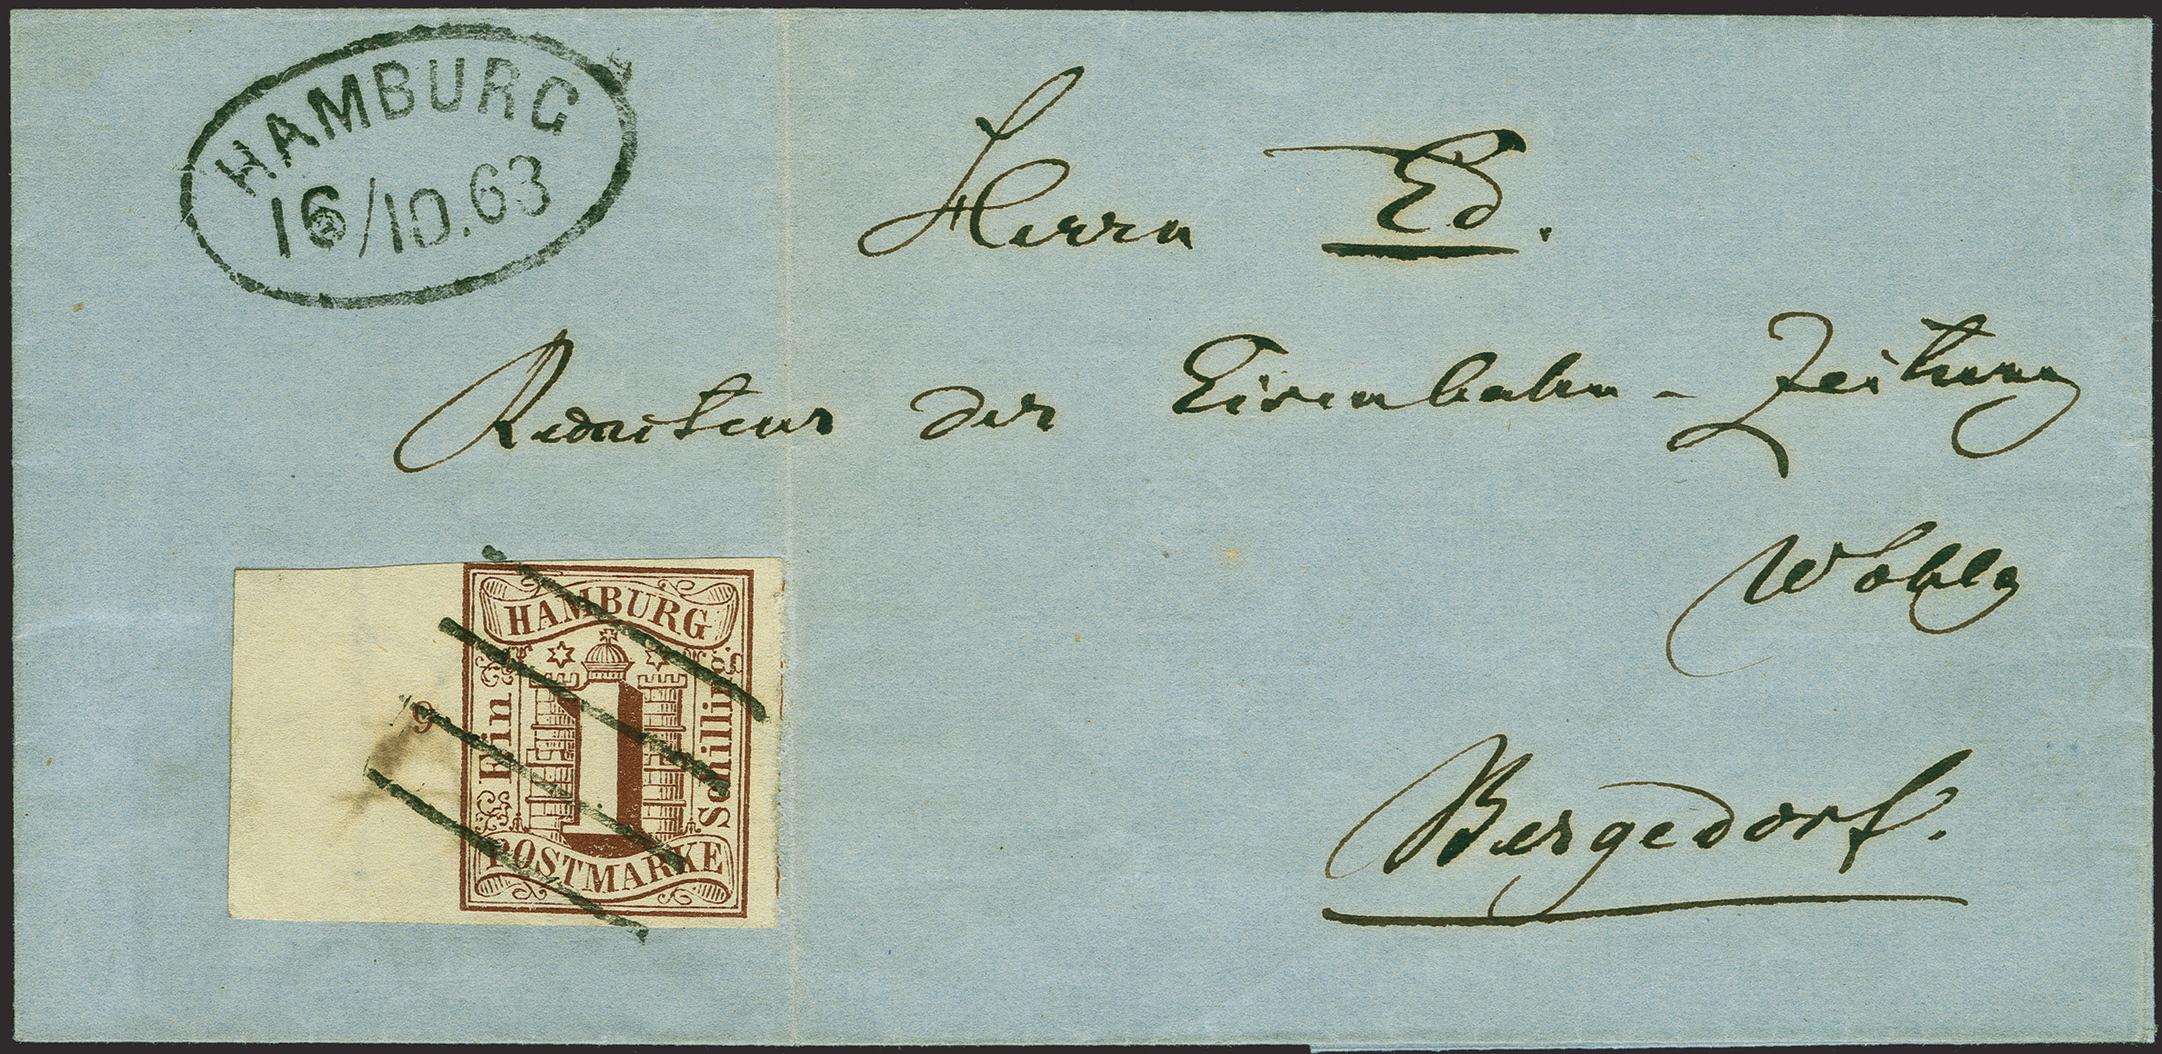 HAMBURG
16/10.63
Herrn Ed.
Redacteur der Eisenbahn-Zeitung
Wohlg
Bergedorf.
9
HAMBURG
Ein
Schilling
1
POSTMARKE